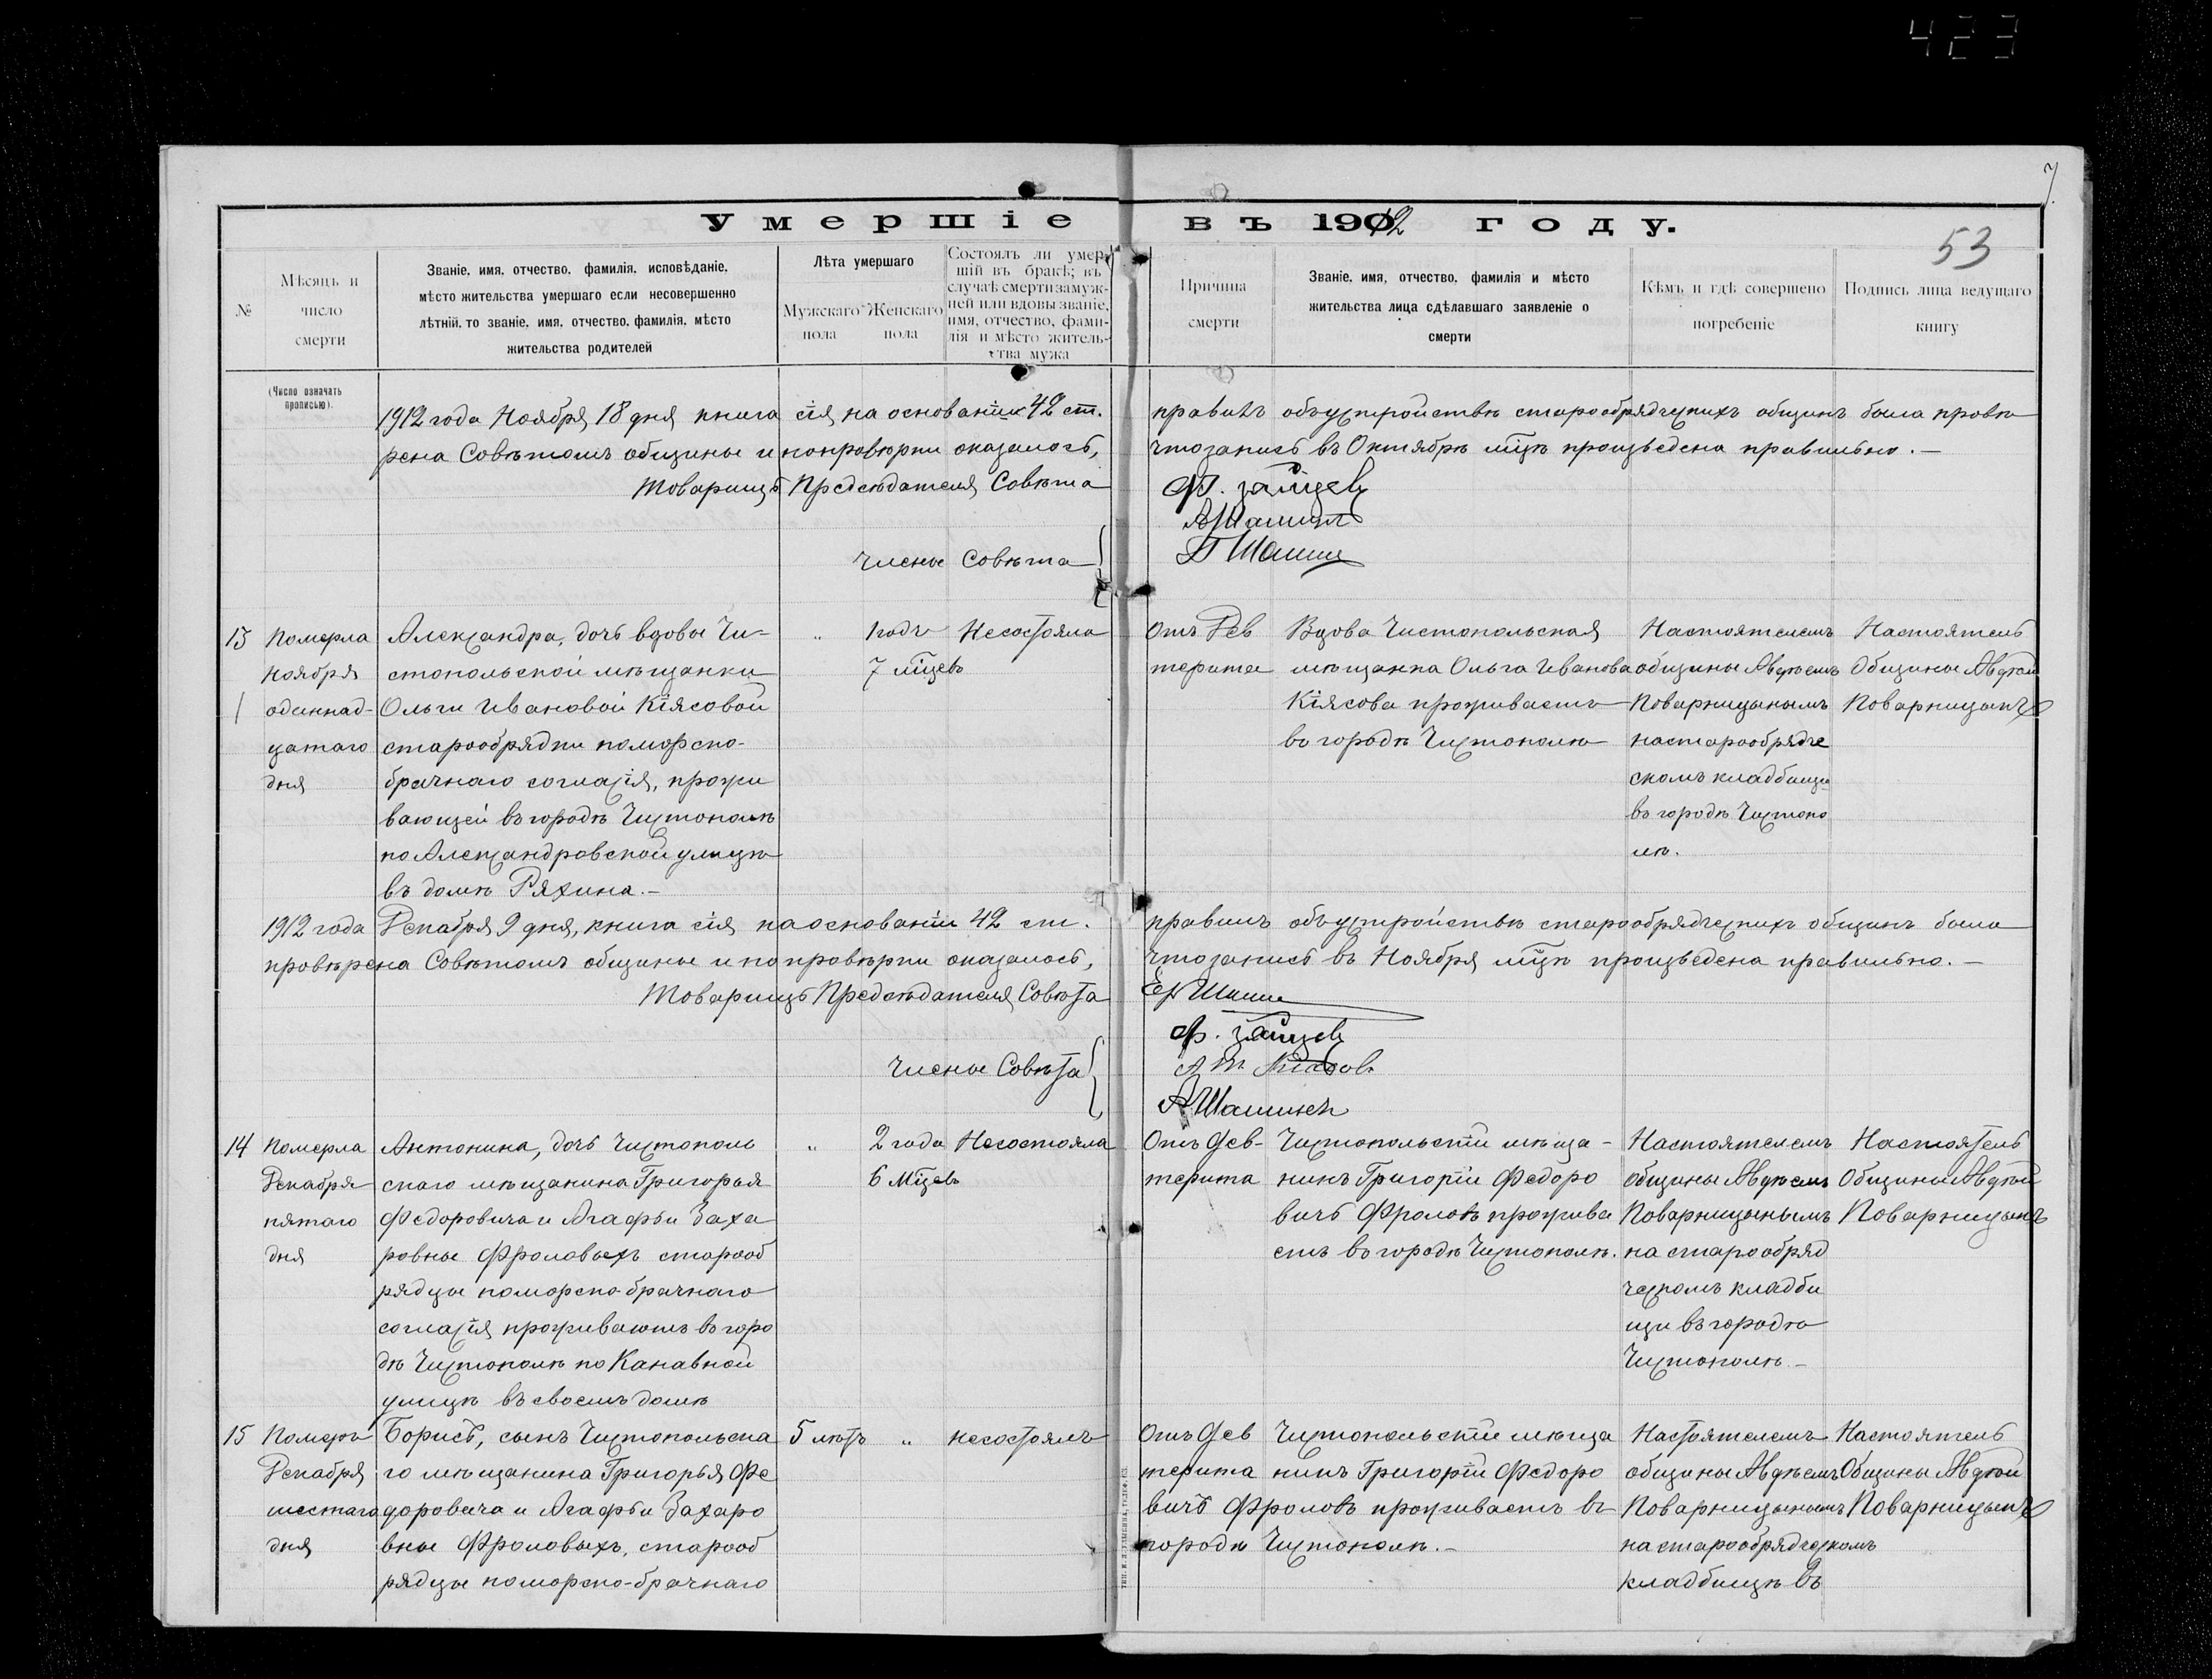 423
7
Умершіе въ 1912 году.
53
№
Мѣсяцъ и
число
смерти
Званіе, имя, отчество, фамилія, исповѣданіе,
мѣсто жительства умершаго если несовершенно
лѣтній, то званіе, имя, отчество, фамилія, мѣсто
жительства родителей
Лѣта умершаго
Мужскаго
пола
Женскаго
пола
Состоялъ ли умер-
шій въ бракѣ; въ
случаѣ смерти замуж-
ней или вдовы званіе,
имя, отчество, фами-
лія и мѣсто житель-
ства мужа
Причина
смерти
Званіе, имя, отчество, фамилія и мѣсто
жительства лица сдѣлавшаго заявленіе о
смерти
Кѣмъ и гдѣ совершено
погребеніе
Подпись лица ведущаго
книгу
(Число означать
прописью).
1912 года Ноября 18 дня книга сія на основаніи 42 ст. правилъ объ устройствѣ старообрядческихъ общинъ была провѣ
рена Совѣтомъ общины и по провѣрки оказалось, что запись въ Октябрѣ мцѣ произведена правильно.—
Товарищъ Предсѣдателя Совѣта Ф. Зайцевъ
А Шашинъ
Члены Совѣта
13
Померла
Ноября
одиннад-
цатаго
дня
Александра, дочь вдовы Чи-
стопольской мѣщанки
Ольги Ивановой Кіясовой
старообрядки поморско-
брачнаго согласія, прожи
вающей въ городѣ Чистополѣ
по Александровской улицѣ
въ домѣ Ряхина.—
„
1 годъ
7 мцевъ
Несостояла
Отъ Деф
терита
Вдова Чистопольская
мѣщанка Ольга Иванова
Кіясова проживаетъ
въ городѣ Чистополѣ
Настоятелемъ
общины Авдѣемъ
Поварницынымъ
на старообрядче
скомъ кладбищи
въ городѣ Чистопо
лѣ.
Настоятель
Общины Авдѣй
Поварницынъ
1912 года Декабря 9 дня, книга сія на основаніи 42 ст. правилъ объ устройствѣ старообрядческихъ общинъ была
провѣрена Совѣтомъ общины и по провѣрки оказалось, что запись въ Ноября мцѣ произведена правильно.—
Товарищъ Предсѣдателя Совѣта
Ф. Зайцевъ
Члены Совѣта
А Шашинъ
14
Померла
Декабря
пятаго
дня
Антонина, дочь Чистополь
скаго мѣщанина Григорья
Федоровича и Агафьи Заха
ровны Фроловыхъ старооб
рядцы поморско-брачнаго
согласія проживаютъ въ горо
дѣ Чистополѣ по Канавной
улицѣ въ своемъ домѣ
„
2 года
6 мцевъ
Несостояла
Отъ Деф-
терита
Чистопольскій мѣща-
нинъ Григорій Федоро
вичъ Фроловъ прожива
етъ въ городѣ Чистополѣ.
Настоятелемъ
общины Авдѣемъ
Поварницынымъ
на старообряд
ческомъ кладби
щи въ городѣ
Чистополѣ.—
Настоятель
Общины Авдѣй
Поварницынъ
15
Померъ
Декабря
шестаго
дня
Борисъ, сынъ Чистопольска
го мѣщанина Григорья Фе
доровича и Агафьи Захаро
вны Фроловыхъ, старооб
рядцы поморско-брачнаго
5 лѣтъ
„
несостоялъ
Отъ Деф
терита
Чистопольскій мѣща
нинъ Григорій Федоро
вичъ Фроловъ проживаетъ въ
городѣ Чистополѣ.—
Настоятелемъ
общины Авдѣемъ
Поварницынымъ
на старообрядческомъ
кладбищѣ въ
Настоятель
Общины Авдѣй
Поварницынъ